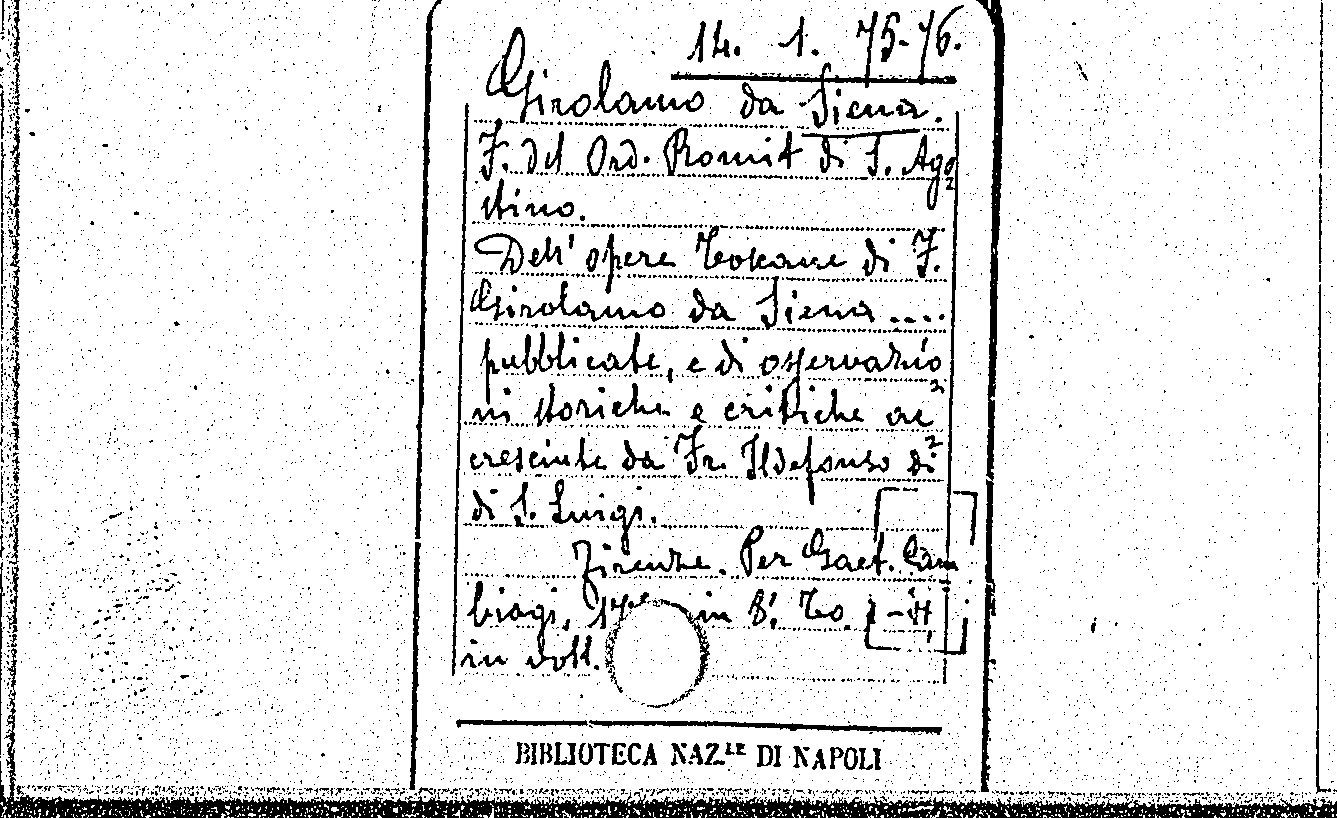 14. 1. 75-76.
Girolamo da Siena.
F. del Ord. Romit di S. Ago=
stino.
Dell' opere toscane di F.
Girolamo da Siena ....
pubblicate, e di osservazio=
ni storiche e critiche ac=
cresciute da Fr. Ildefonso di=
di S. Luigi.
Firenze. Per Gaet. Cam
biagi, in 8.º To. I-II,
in voll.
BIBLIOTECA NAZ.LE DI NAPOLI